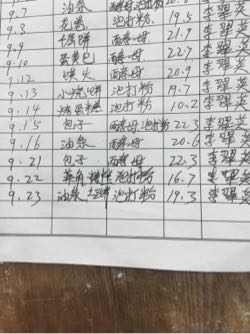 9.7 油条 酵母 泡打粉 20.9
9.8 花卷 泡打粉 19.5 李翠英
9.9 酵母 21.9 李翠英
9.10 蛋黄包 酵母 22.7 李翠英
9.12 酵母 20.9 李翠英
9.13 小烧饼 泡打粉 19.7 李翠英
9.14 蛋糕 泡打粉 10.2 李翠英
9.15 包子 酵母 泡打粉 22.3 李翠英
9.16 油条 酵母 20.6 李翠英
9.21 包子 酵母 22.3 李翠英
9.22 泡打粉 16.7 李翠英
9.23 油条 泡打粉 19.3 李翠英